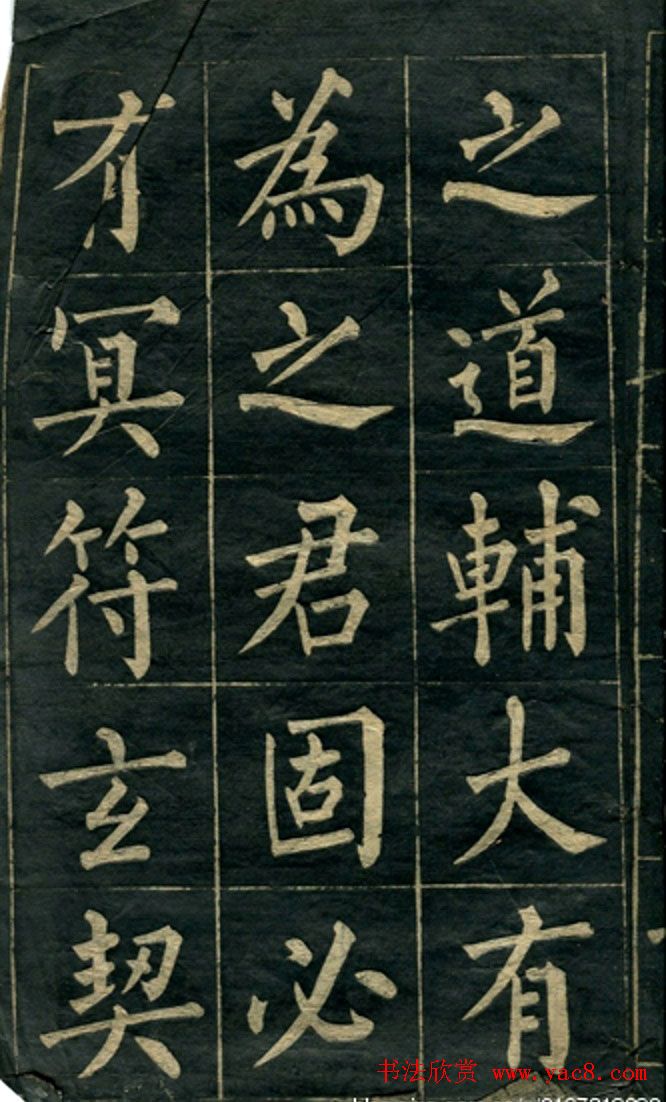 之道輔大有
為之君固必
有冥符玄契
书法欣赏 www.yac8.com